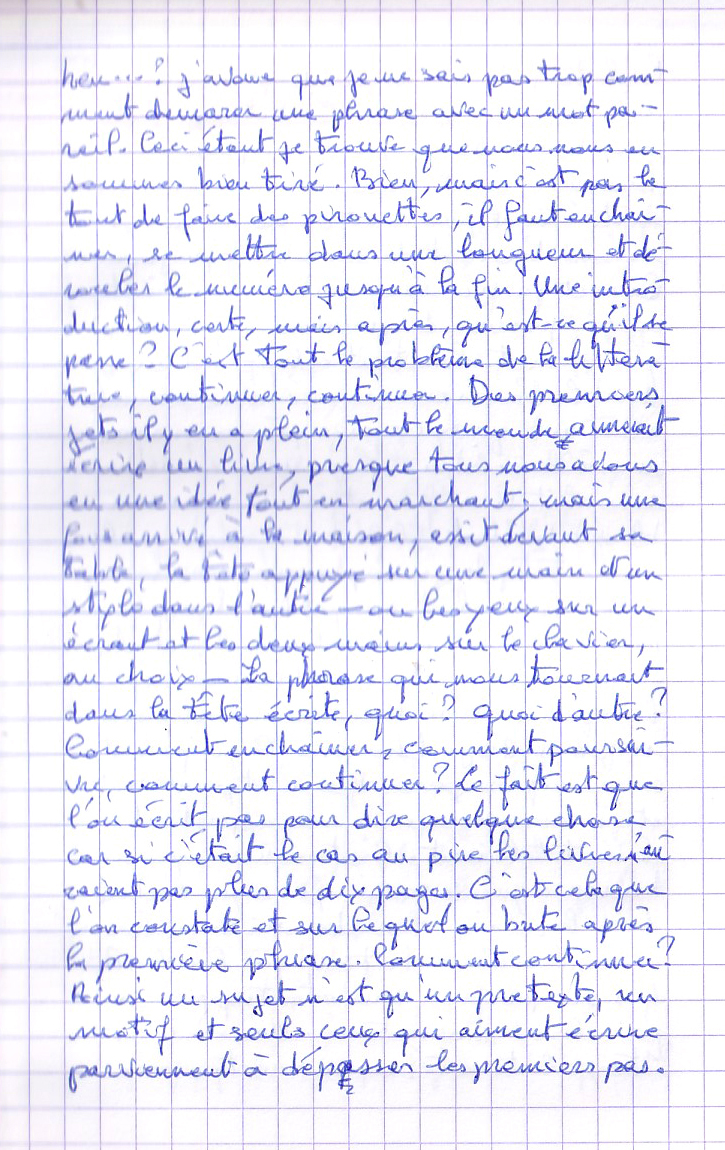 heu...? j'avoue que je ne sais pas trop com-
ment demarer une phrase avec un mot pa-
reil. Ceci étant je trouve que nous nous en
sommes bien tiré. Bien, mais c'est pas le
tout de faire des pirouettes, il faut enchaî-
ner, se mettre dans une longueur et dé-
rouler le numéro jusqu'à la fin. Une intro
duction, certe, mais après, qu'est-ce qu'il se
passe? C'est tout le problème de la littéra
ture, continuer, continuer. Des premiers
jets il y en a plein, tout le monde aimerait
écrire un livre, presque tous nous avons
eu une idée tout en marchant, mais une
fois arrivé à la maison, assit devant sa
table, la tête appuyé sur une main et un
stylo dans l'autre - ou les yeux sur un
écrant et les deux mains sur le clavier,
au choix - La phrase qui nous tournait
dans la tête écrite, quoi? Quoi d'autre?
Comment enchaîner, comment poursui-
vre, comment continuer? Le fait est que
l'on écrit pas pour dire quelque chose
car si c'était le cas au pire les livres n'au
raient pas plus de dix pages. C'est cela que
l'on constate et sur lequel on bute après
la première phrase. Comment continuer?
Ainsi un sujet n'est qu'un pretexte, un
motif et seuls ceux qui aiment écrire
parviennent à dépasser les premiers pas.